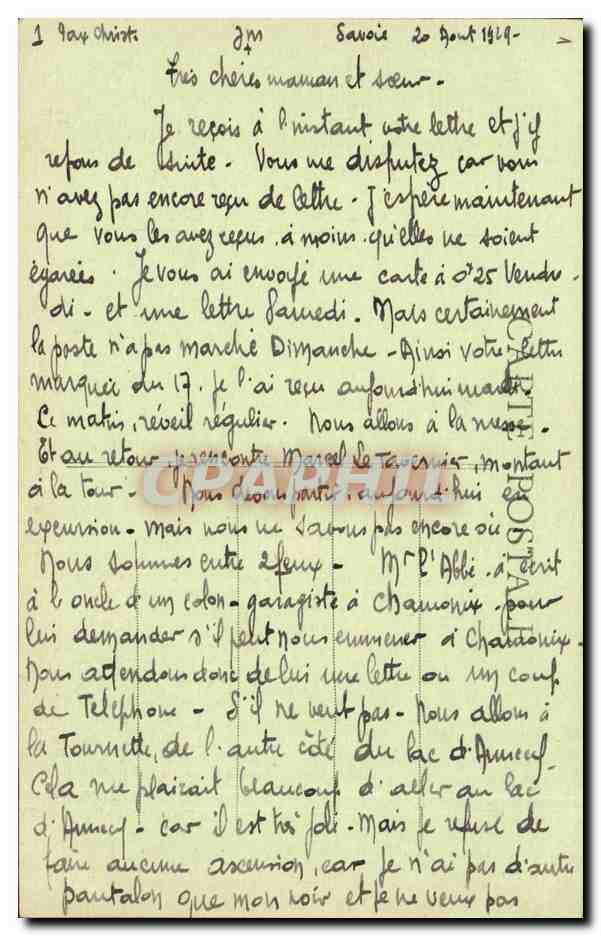 1 Pax Christi Jm Savoie 20 Aout 1929 -
Très chères maman et sœur -
Je reçois à l'instant votre lettre et j'y
repons de suite - Vous me disputez car vous
n'avez pas encore reçu de lettre - J'espère maintenant
que vous les avez reçus, à moins qu'elles ne soient
égarées. Je vous ai envoyé une carte à 0f25 Vendre-
di - et une lettre Samedi. Mais certainement
la poste n'a pas marché Dimanche - Ainsi votre lettre
marquée du 17. Je l'ai reçu aujourd'hui mardi.
Ce matin, réveil régulier. Nous allons à la messe.
Et au retour je rencontre Marcel le Tavernier, montant
à la tour - Nous devons partir, aujourd'hui en
excursion - mais nous ne savons pas encore où.
Nous sommes entre 2 feux - Mr l'Abbé a écrit
à l'oncle d'un colon - garagiste à Chamonix - pour
lui demander s'il peut nous emmener à Chamonix -
Nous attendons donc de lui une lettre ou un coup
de Telephone - S'il ne veut pas - Nous allons à
la Tournette, de l'autre côté du lac d'Annecy -
Cela me plairait beaucoup d'aller au lac
d'Annecy - car il est très joli - Mais je refuse de
faire aucune ascension, car je n'ai pas d'autre
pantalon que mon noir et je ne veux pas
CARTE POSTALE
CPAPHIL